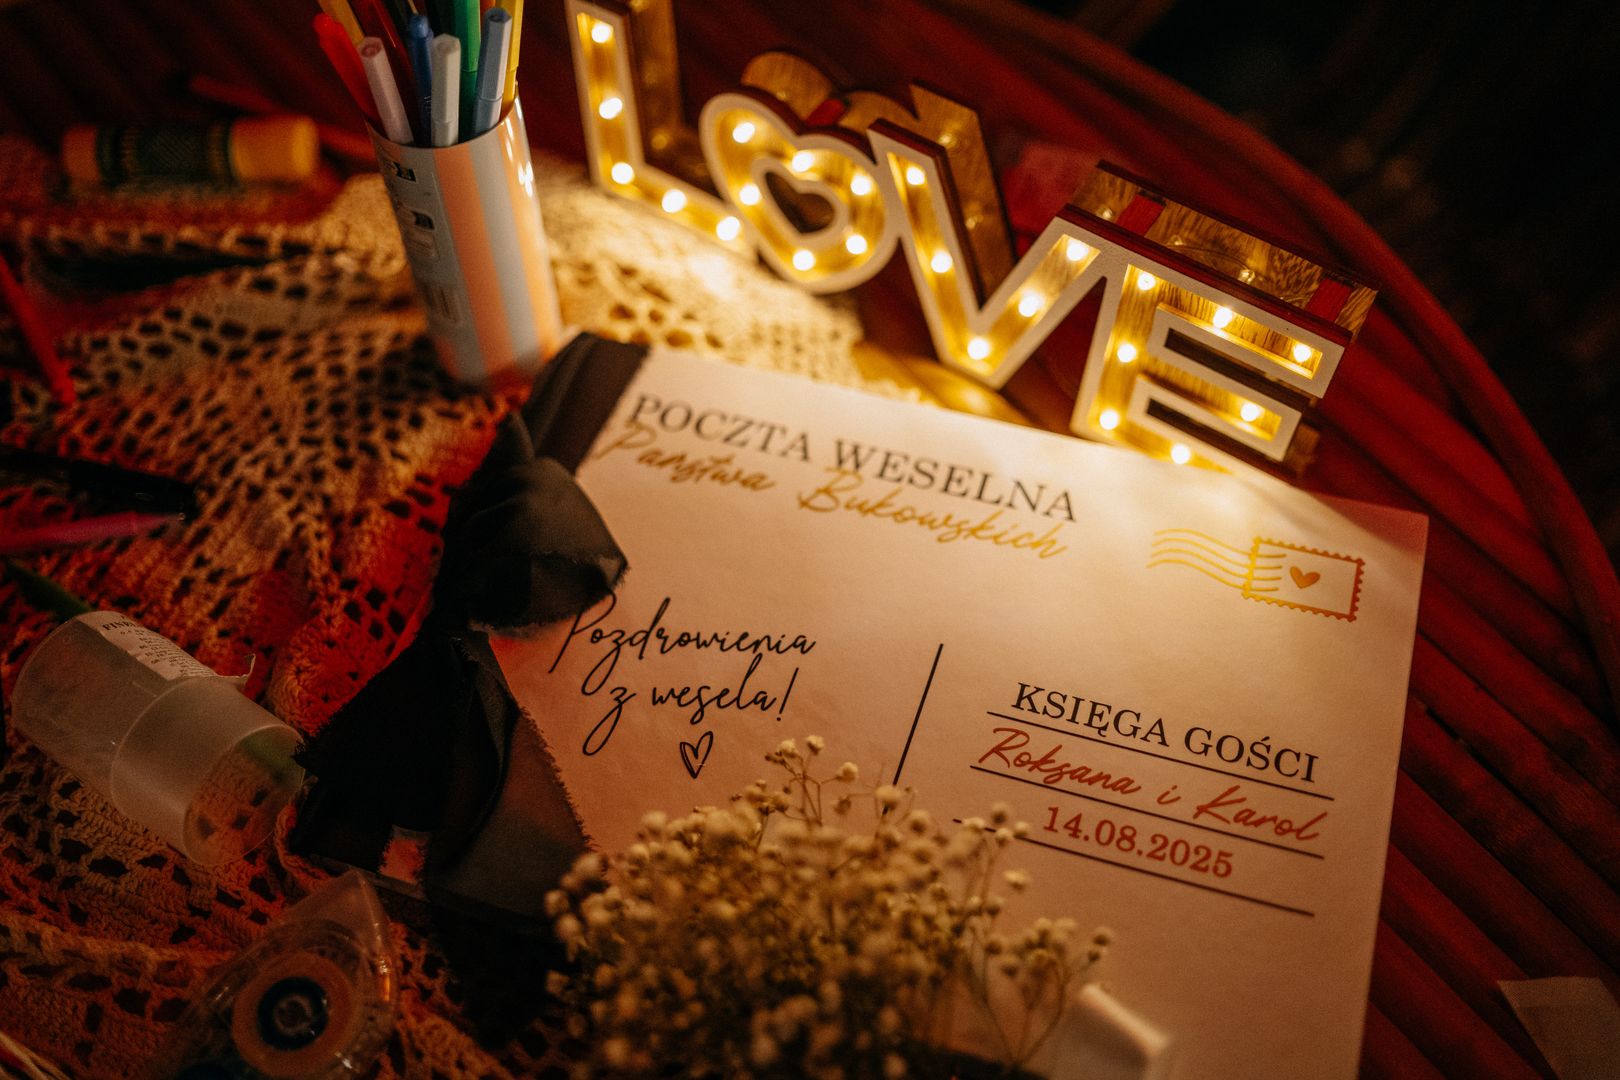 LOVE
POCZTA WESELNA
Państwa Bukowskich
Pozdrowienia
z wesela!
KSIĘGA GOŚCI
Roksana i Karol
14.08.2025